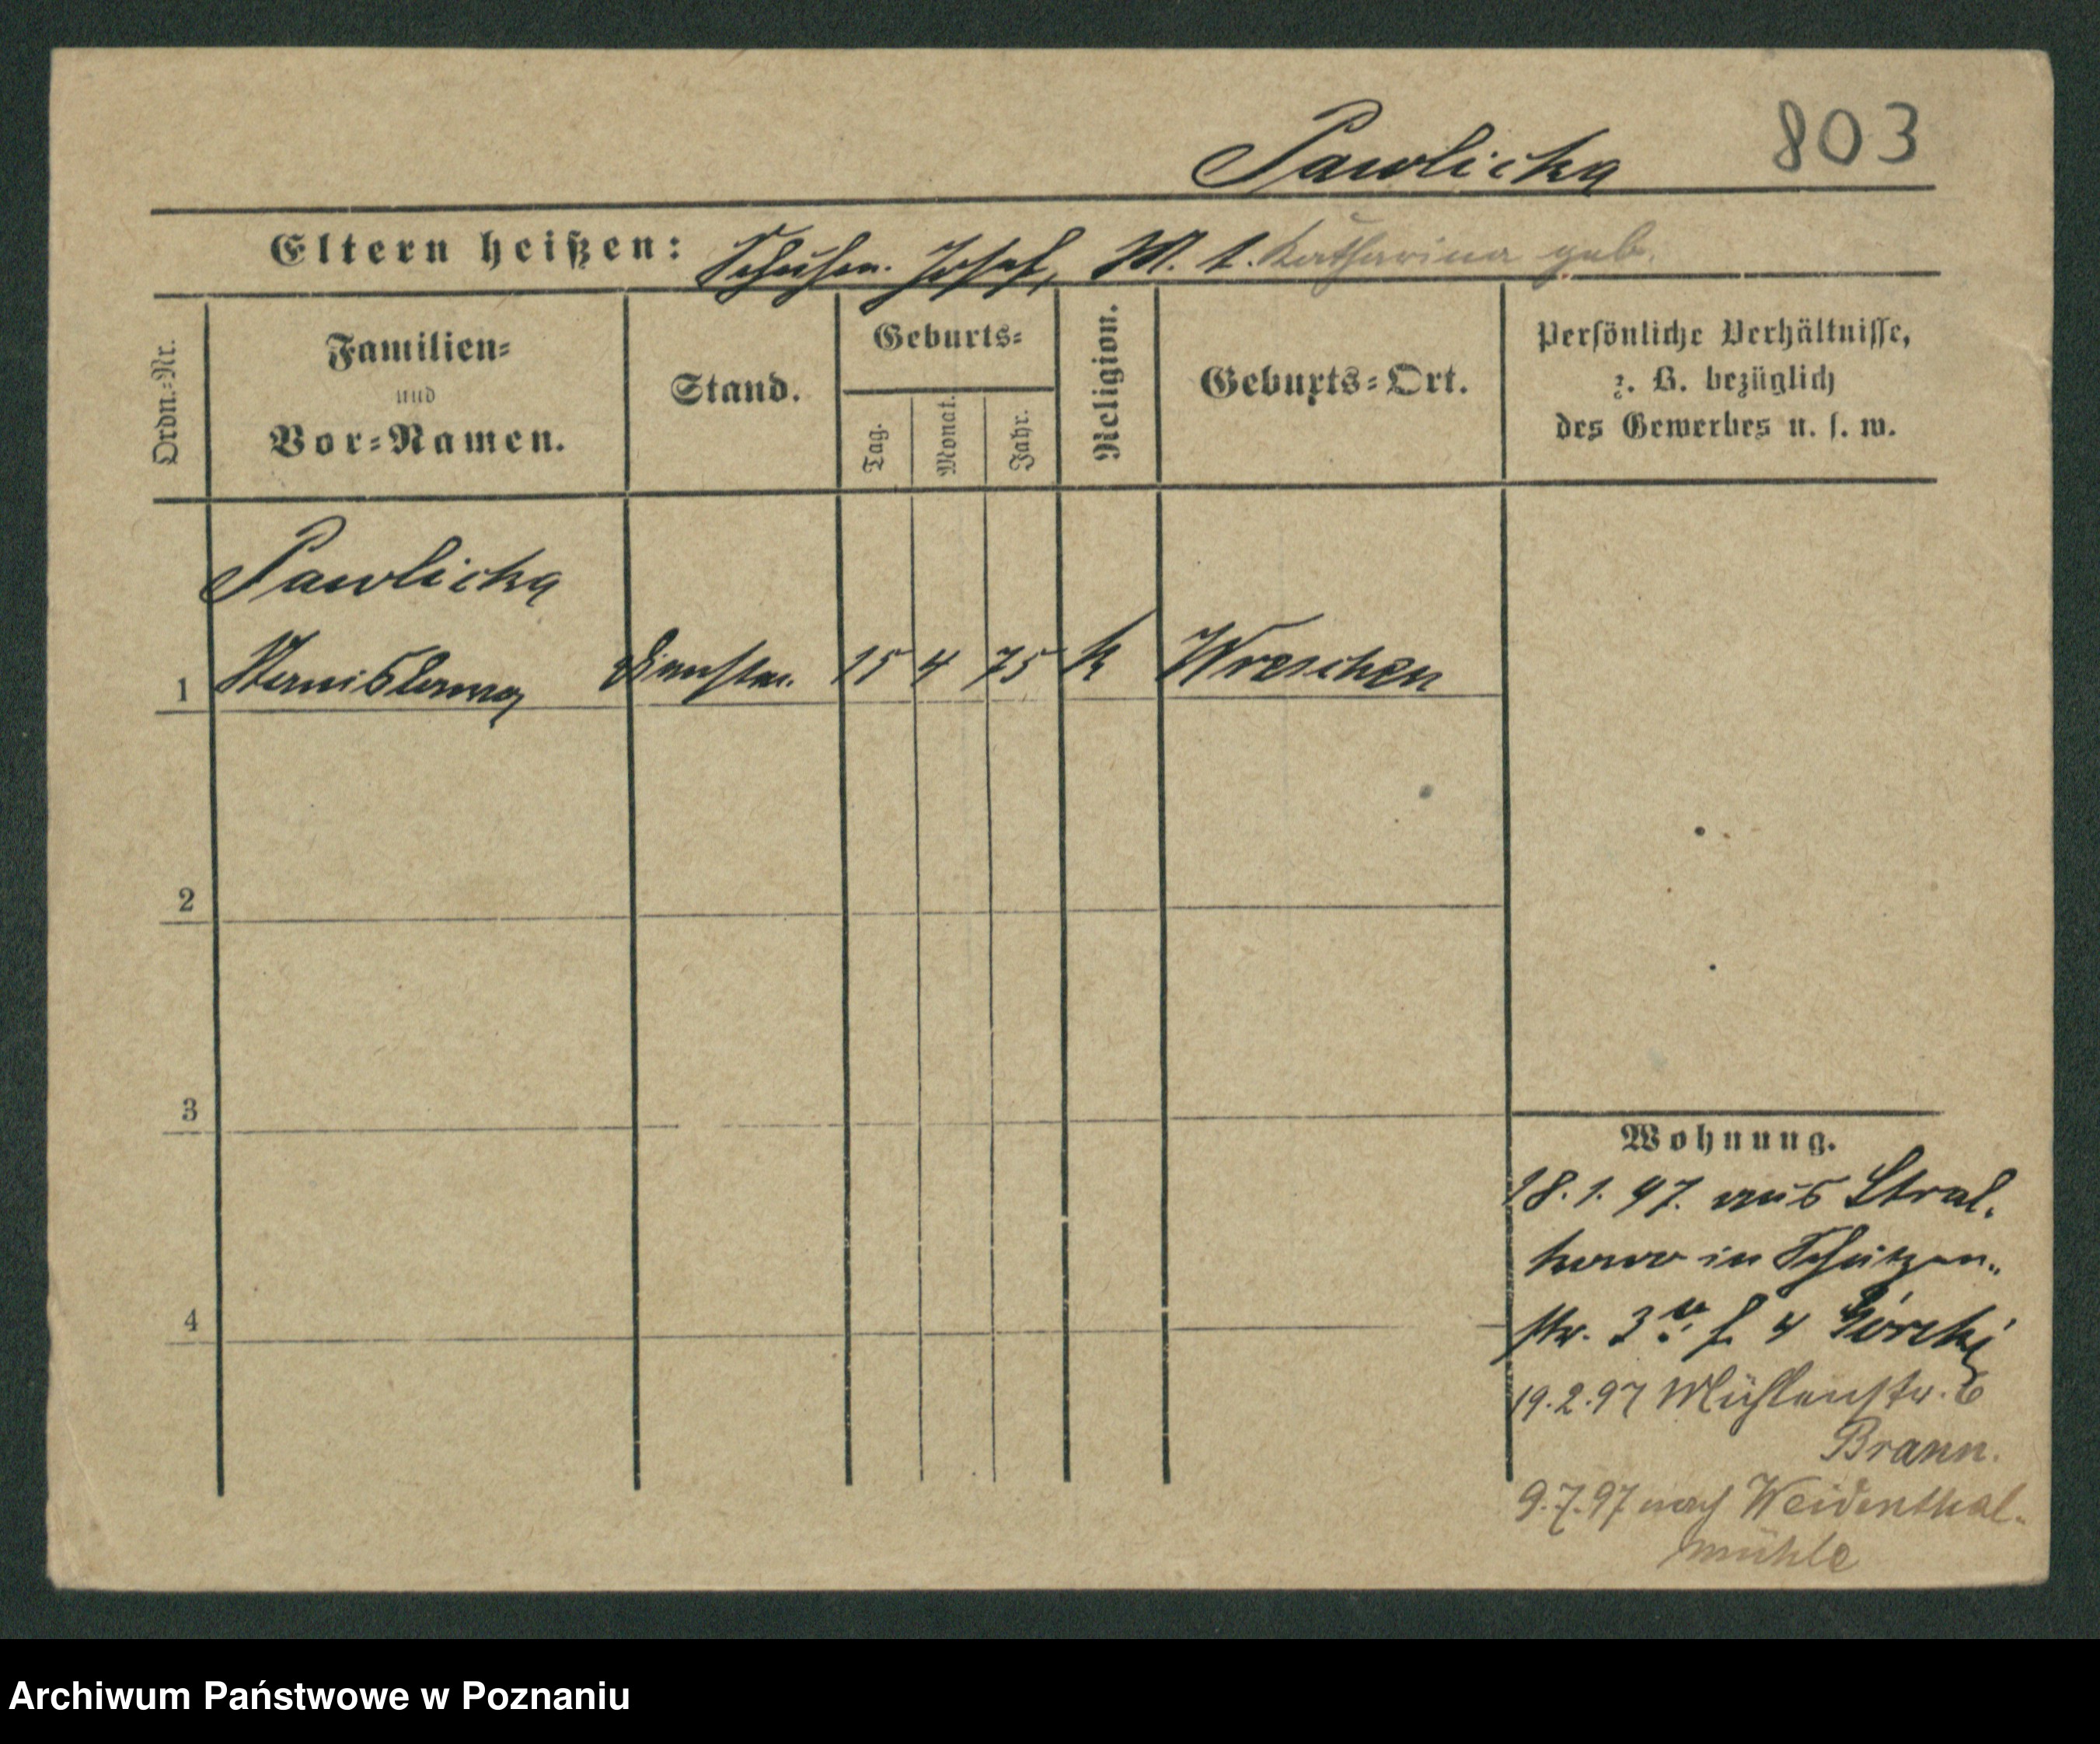 Pawlicka 803
Eltern heißen: Schuhm. Josef, M. t. Katharina geb.
Ordn.=Nr.
Familien=
und
Vor=Namen.
Stand.
Geburts=
Tag.
Monat.
Jahr.
Religion.
Geburts=Ort.
Persönliche Verhältnisse,
z. B. bezüglich
des Gewerbes u. s. w.
Pawlicka
1 Stanislawa 15 4 75 k Wreschen
2
3
4
Wohnung.
18.1.97. aus Stral.
kowo in Schützen..
str. 3 4 Górski
19.2.97 Mühlenstr. 6
Brann.
9.7.97 nach Weidenthal-
mühle
Archiwum Państwowe w Poznaniu